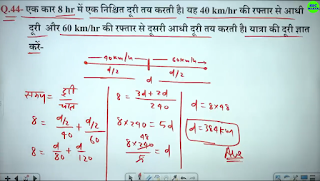 Q.44- एक कार 8 hr में एक निश्चित दूरी तय करती है। यह 40 km/hr की रफ्तार से आधी
दूरी और 60 km/hr की रफ्तार से दूसरी आधी दूरी तय करती है। यात्रा की दूरी ज्ञात
करें-
40km/h 60km/h
d/2 d/2
d
समय = दूरी/चाल
8 = d/2/40 + d/2/60
8 = d/80 + d/120
8 = 3d+2d/240
8×240 = 5d
48
8×240/5 = d
d = 8×48
d = 384km
Ans